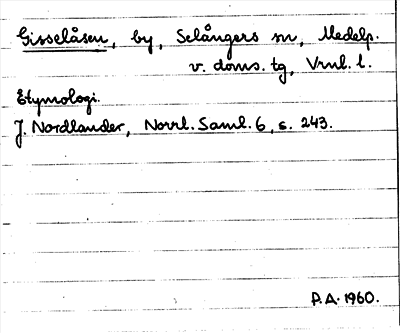 Gisselåsen, by, Selångers sn, Medelp.
v. doms. tg, Vrnl. l.
Etymologi.
J. Nordlander, Norrl. Saml. 6, s. 243.
P.A. 1960.